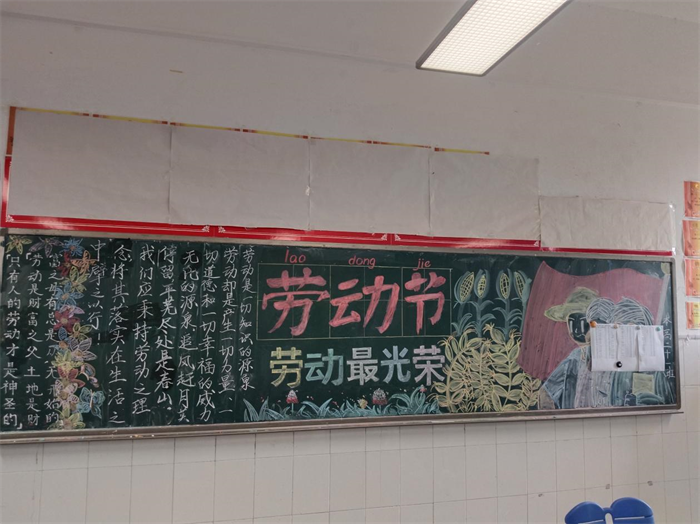 lao dong jie
劳动节
劳动最光荣
劳动是一切知识的源泉
劳动却是产生一切力量、
一切道德和一切幸福的威力
无比的源泉追风赶月莫
停留平芜尽处是春山、
我们应秉持劳动之理
念持其落实在生活之
中、笃之以行
"劳动是财富之父土地是财
富之母
"只有人的劳动才是神圣的"